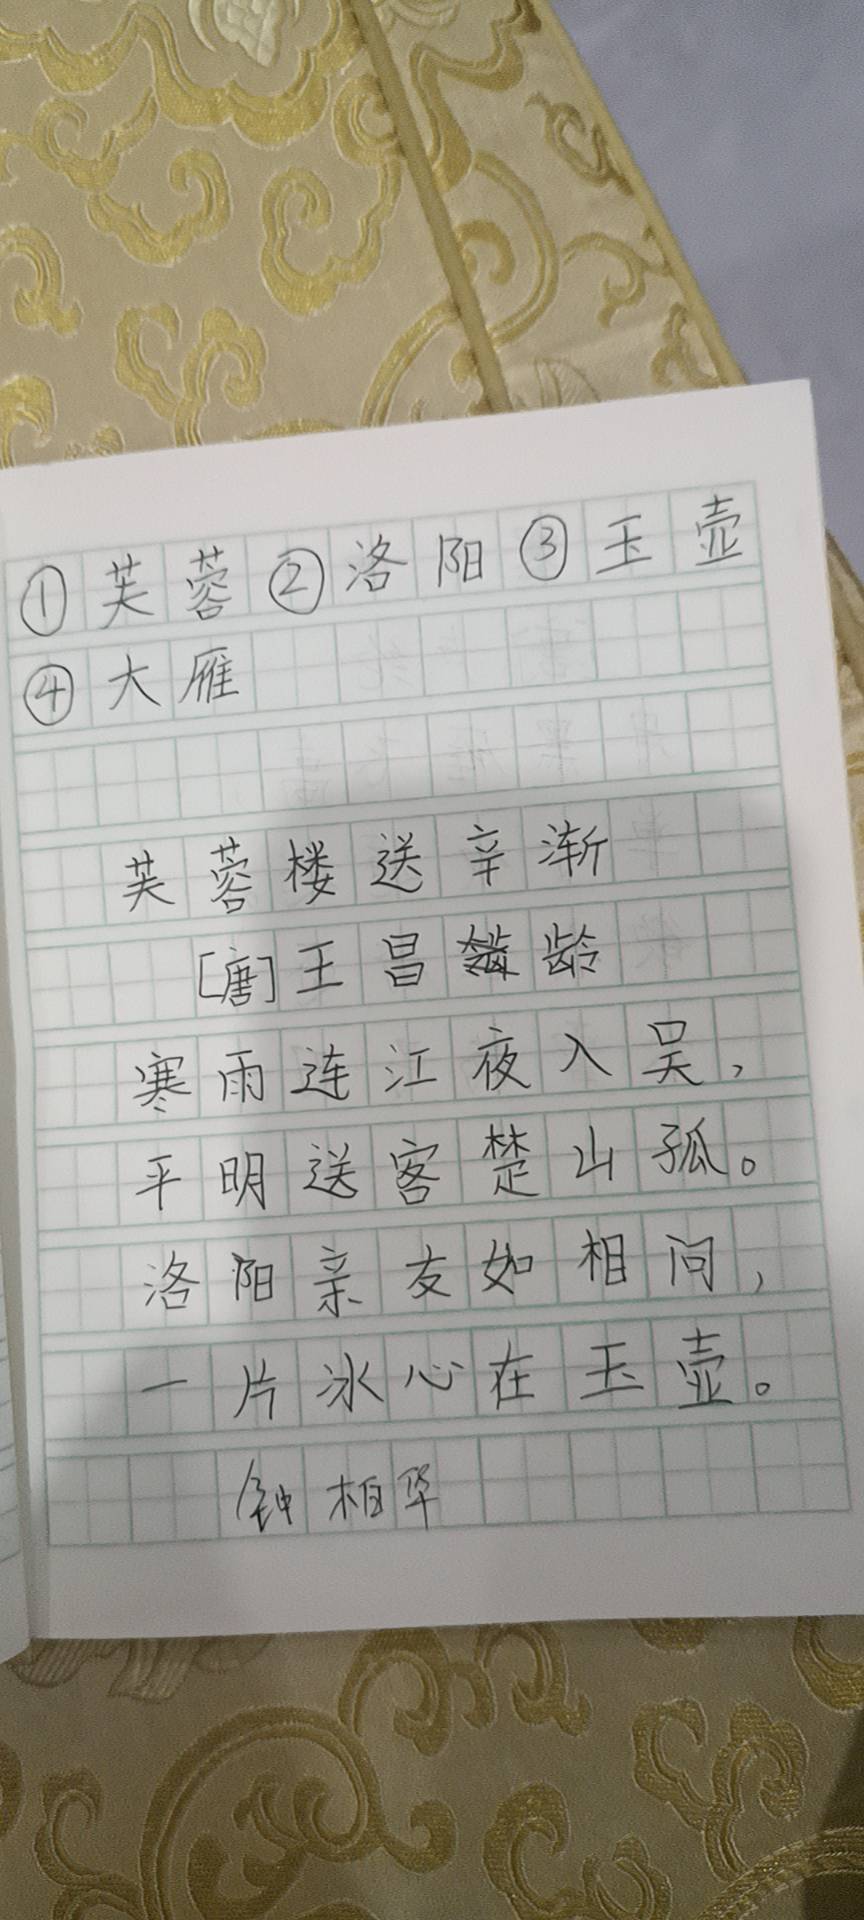 ①芙蓉②洛阳③玉壶
④大雁
芙蓉楼送辛渐
[唐]王昌龄
寒雨连江夜入吴，
平明送客楚山孤。
洛阳亲友如相问，
一片冰心在玉壶。
钟柏华